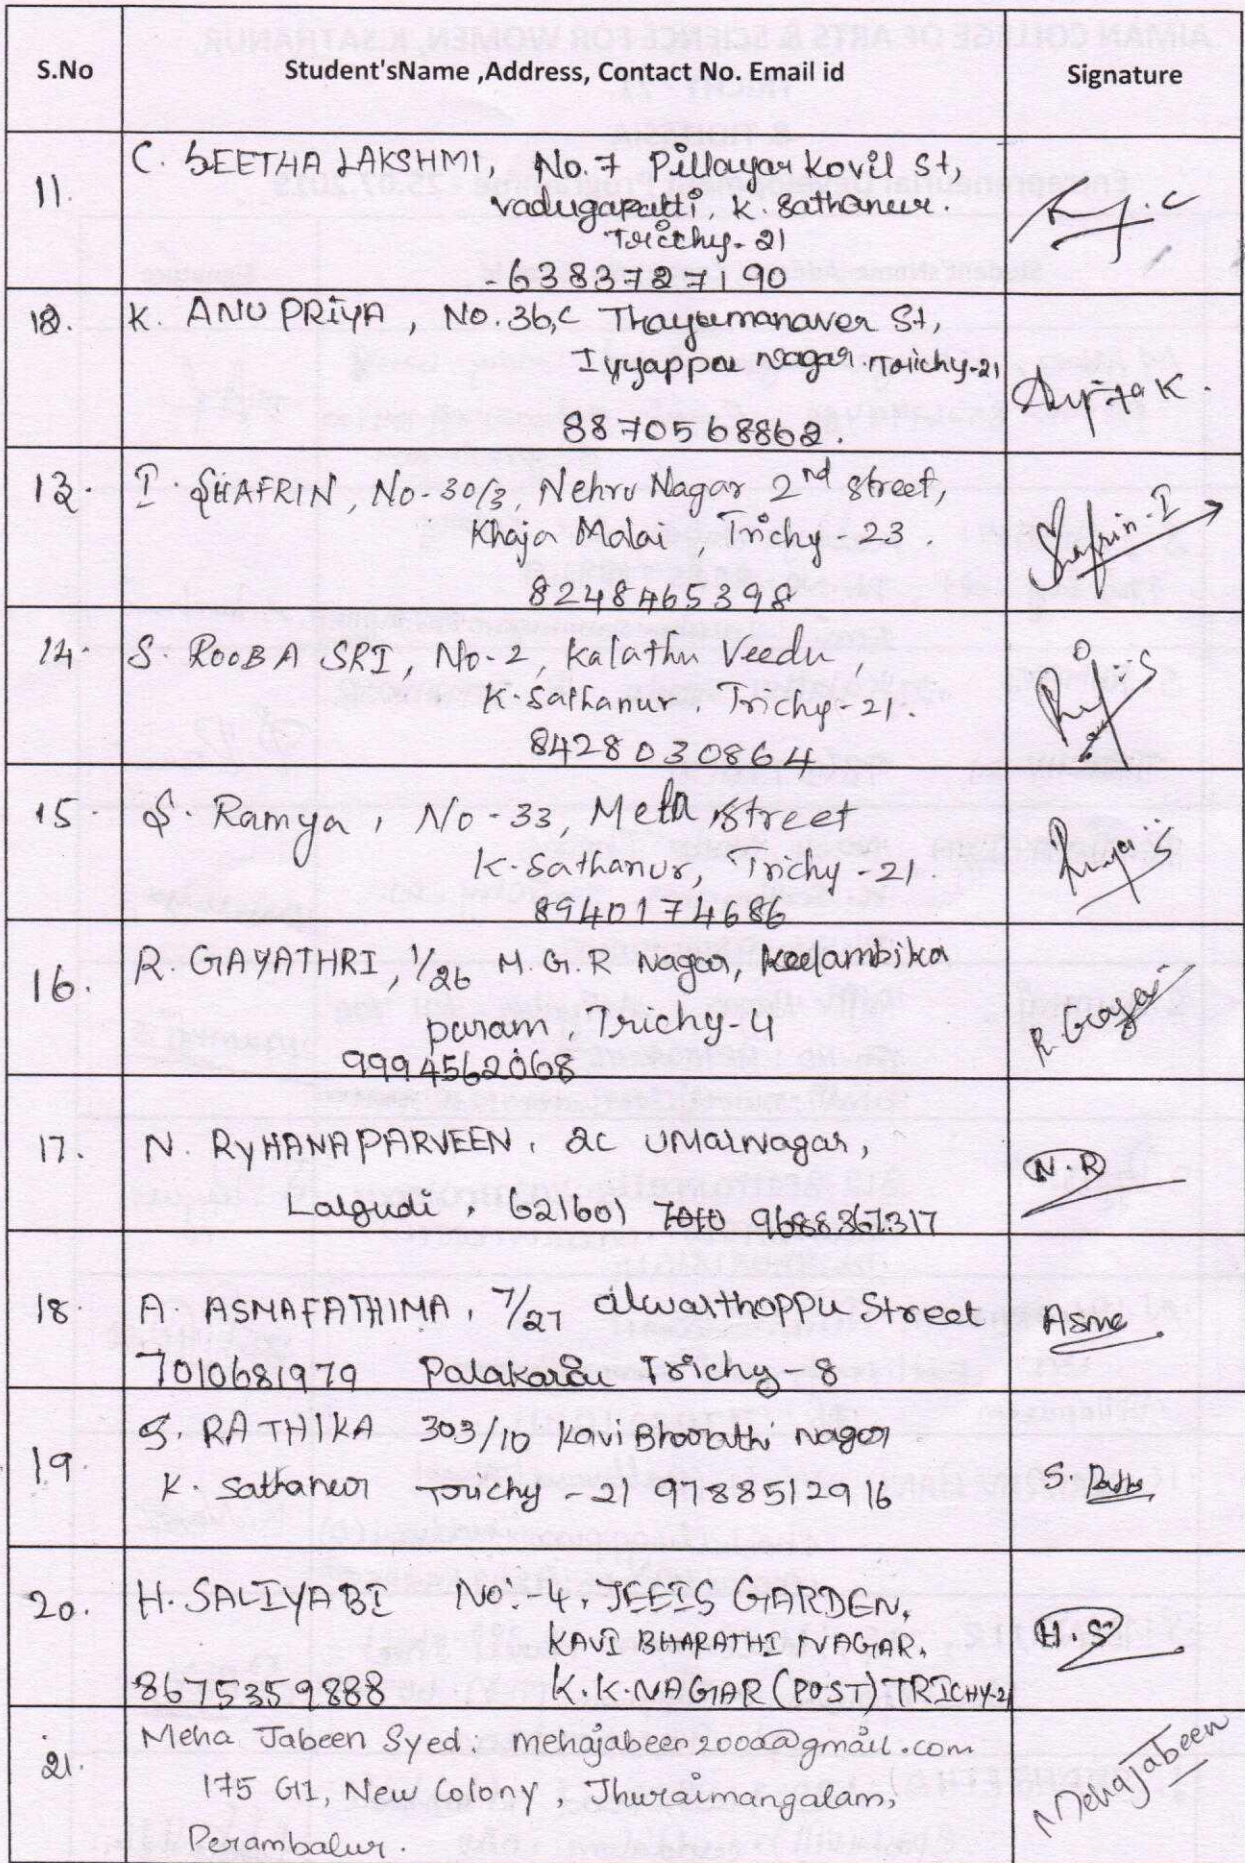 S.No Student'sName ,Address, Contact No. Email id Signature
11. C. SEETHA LAKSHMI, No.7 Pillayar Kovil St,
vadugapatti, K. Sathanur.
Trichy-21
- 6383727190
12. K. ANU PRIYA, No.36,c Thayumanaver St,
Iyyappa nagar. Trichy-21
8870568862.
13. I. SHAFRIN, No-30/3, Nehru Nagar 2nd street,
Khaja Malai, Trichy-23.
8248465398
Shafrin-I
14. S. ROOBA SRI, No-2, Kalathu Veedu,
K-Sathanur, Trichy-21.
8428030864
15. S. Ramya, No-33, Mela street
K-Sathanur, Trichy-21.
8940174686
Ramya S
16. R. GAYATHRI, 1/26 M.G.R Nagar, Keelambika
puram, Trichy-4
9994562068
R. Gaya
17. N. RYHANAPARVEEN, 2c UMARNagar,
Lalgudi, 621601 7010 9688367317
N.R
18 A. ASMAFATHIMA, 7/27 alwarthoppu Street Asma
7010681979 Palakarai Trichy-8
19. S. RATHIKA 303/10 Kavi Bharathi nagar
K. Sathanur Trichy - 21 9788512916
S.
20. H. SALIYABI No:-4, JEEIS GARDEN,
KAVI BHARATHI NAGAR,
H.S
8675359888 K.K.NAGAR (POST) TRICHY-21
21. Meha Jabeen Syed: mehajabeen2000@gmail.com
175 G1, New Colony, Thuraimangalam,
Perambalur.
Mehajabeen